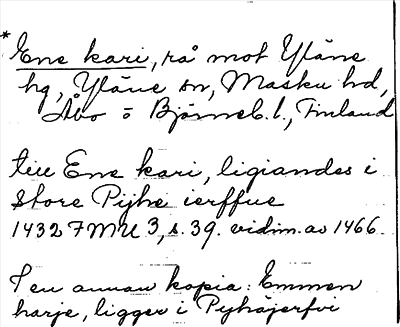 * Ens kari, rå mot Yläne
hg, Yläne sn, Masku hd,
Åbo o Björneb. l., Finland
till Ens kari, ligiandes i
Store Pyhe ierffue
1432 FMU 3, s. 39. vidim. av 1466.
I en annan kopia: Emmen
harje, ligger i Pyhäjerfvi